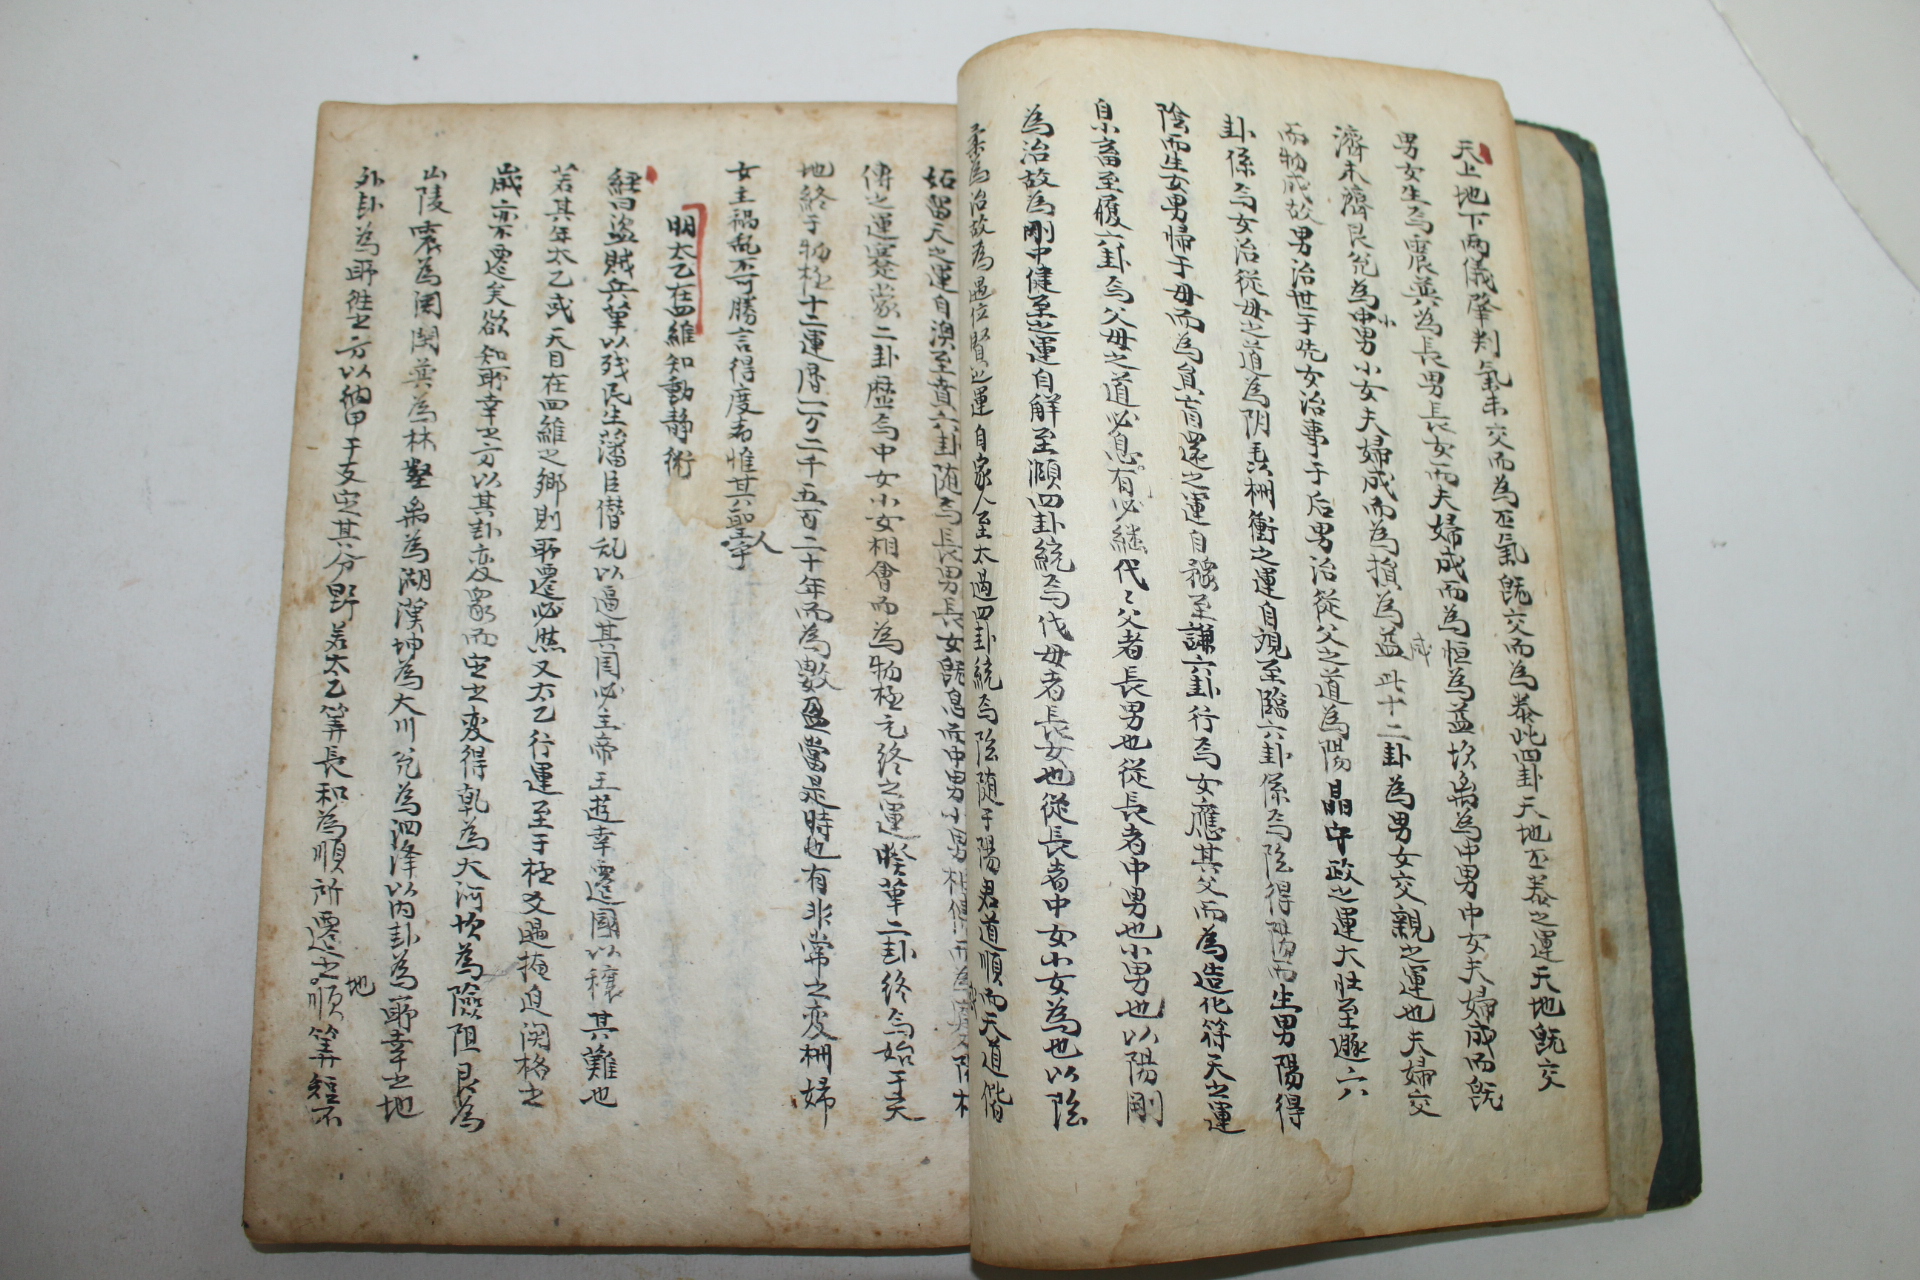 天上地下兩儀肇判氣未交而為否氣旣交而為泰此四卦天地否泰之運天地旣交
男女生焉震巽為長男長女而夫婦成而為恒為益坎离為中男中女夫婦成而旣
濟未濟艮兌為小男小女夫婦成而為損為咸此十二卦為男女交親之運也夫婦交
而物成故男治世于先女治事于后男治從父之道為陽晶守政之運大壯至遯六
卦係焉女治從母之道為阴毛柵衝之運自觀至臨六卦係焉陰得陽而生男陽得
陰而生女男帰于母而為還之運自豫至謙六卦行焉女應其父而為造化符天之運
自小畜至履六卦焉父母之道必息有必継代〻父者長男也從長者中男也小男也以陽剛
為治故為剛中健至之運自解至頤四卦統焉代母者長女也從長者中女小女為也以陰
柔為治故為位賢之運自家人至太過四卦統焉陰随于陽君道順而天道偕
姤留天之運自渙至賁六卦随焉長男長女旣息而中男小男相傳而為
傳之運蹇蒙二卦歷焉中女小女相會而為物極乞終之運睽革二卦終焉始于天
地終于物極十二運曆一万二千五百二十年而為數盈當是時也有非常之变柵婦
女主禍亂不可勝言得度者惟其聖人宰
明太乙在四維知動靜術
經曰盗賊兵革以残民生藩臣僭乱以逼其国必主帝王遊幸遷國以穰其難也
若其年太乙或天目在四維之鄉則耶遷必然又太乙行運至于極爻遇掩迫関格之
歲亦不遷矣欲知耶幸之方以其卦变象而定之变得乾為大河坎為險阻艮為
山陵震為関巽為林壑离為湖漢坤為大川兌為泗泽以內卦為耶幸之地
外卦為耶徃之方以納甲于支定其分野若太乙筭長和為順所遷之地順筭短不